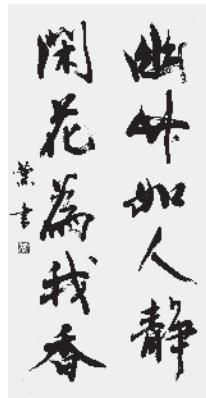 幽竹如人静
闲花為我香
叶书